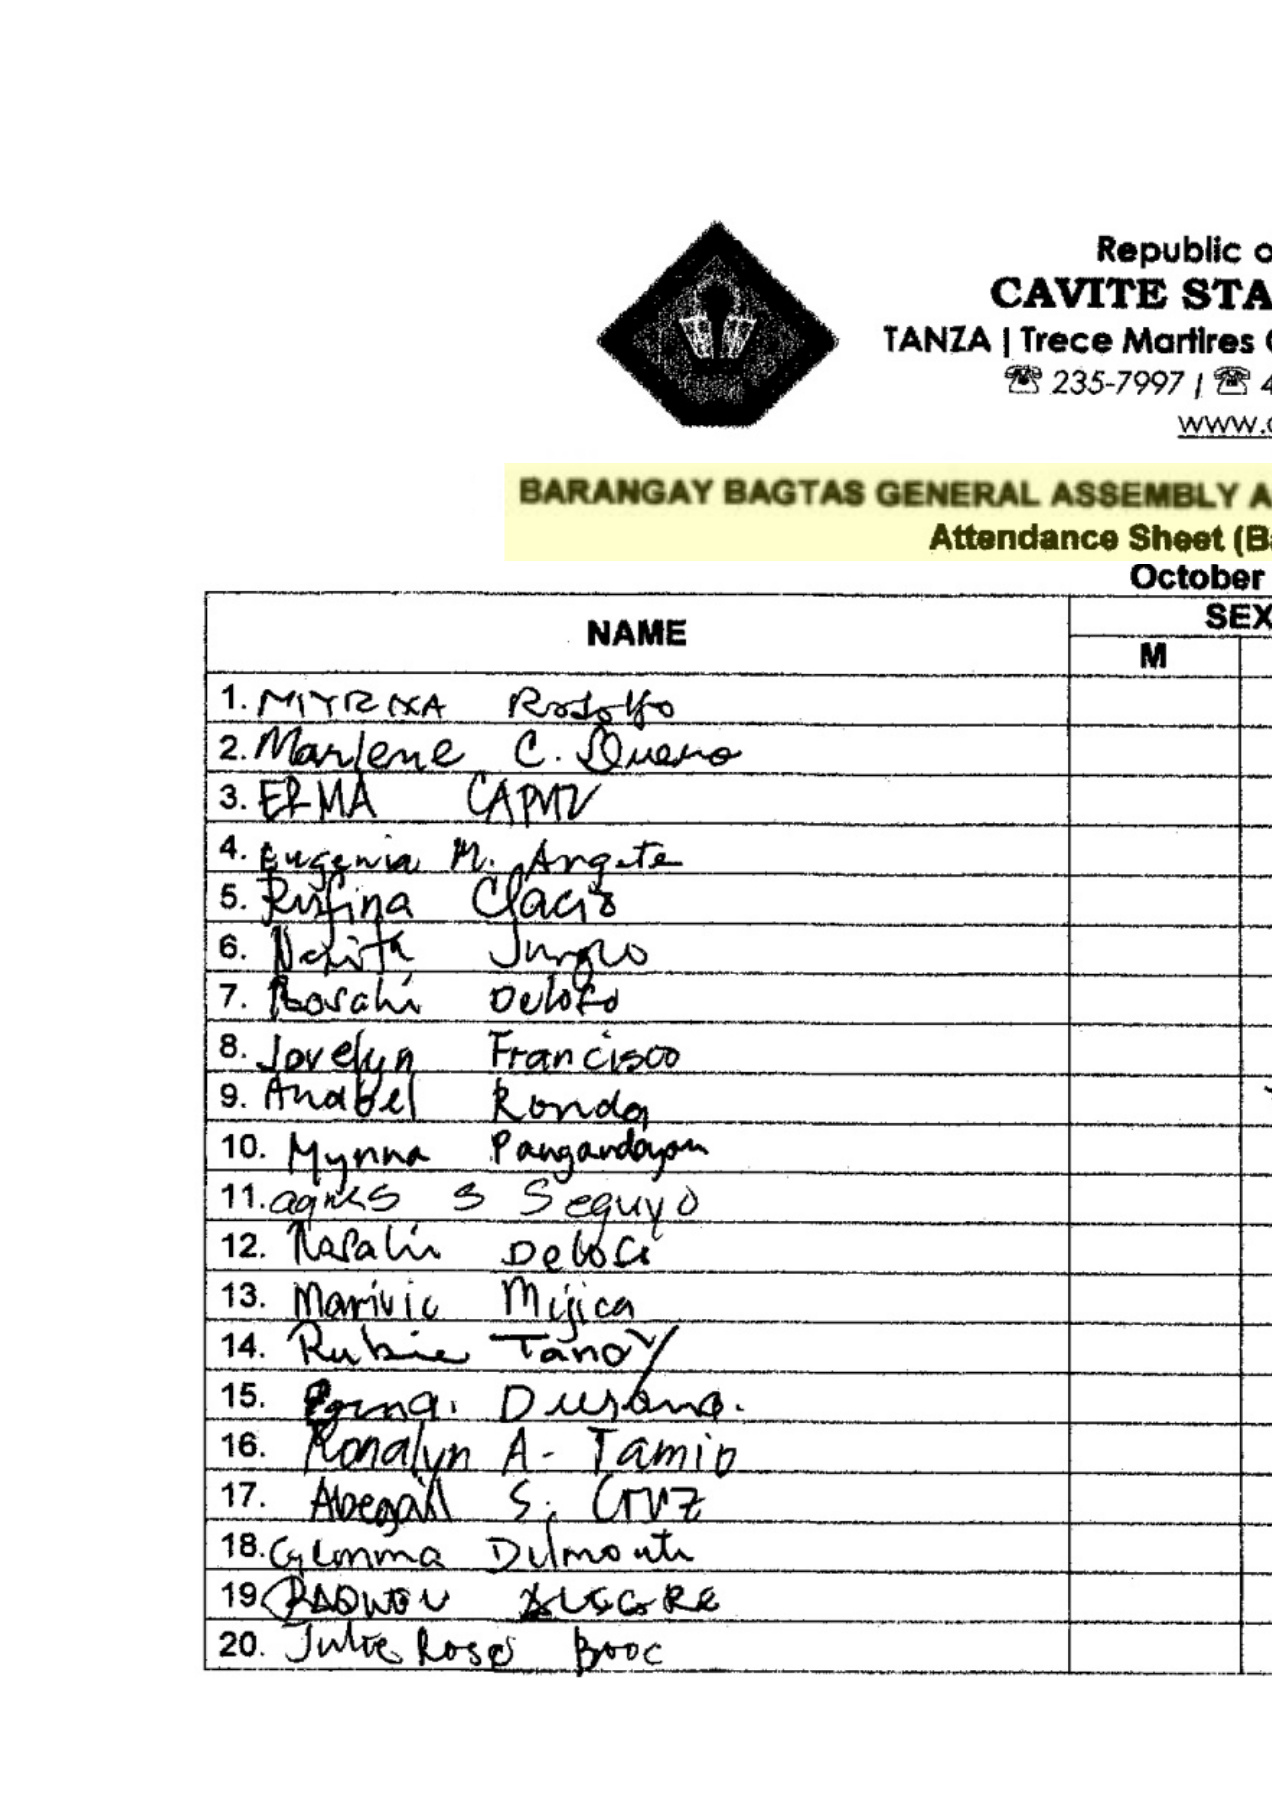 Republic o
CAVITE STA
TANZA | Trece Martires C
☏ 235-7997 / ☏ 4
www.c
BARANGAY BAGTAS GENERAL ASSEMBLY A
Attendance Sheet (Ba
October
NAME
SEX
M
1. MYRNA Rodolfo
2. Marlene C. Bueno
3. ERMA
4. Eugenia M. Argete
5. Rufina Clacio
6. Nenita
7. Rosalii
8. Jovelyn Francisco
9. Anabel Ronda
10. Mynna Pangandayon
11. agnes S Seguyo
12. Rosalii
13. Marivic Mijica
14. Rubie Tanoy
15. Durana.
16. Ronalyn A. Tamio
17. Abegail S. Cruz
18. Glemma Delmonte
19. ALEGRE
20. Julie Rose Booc